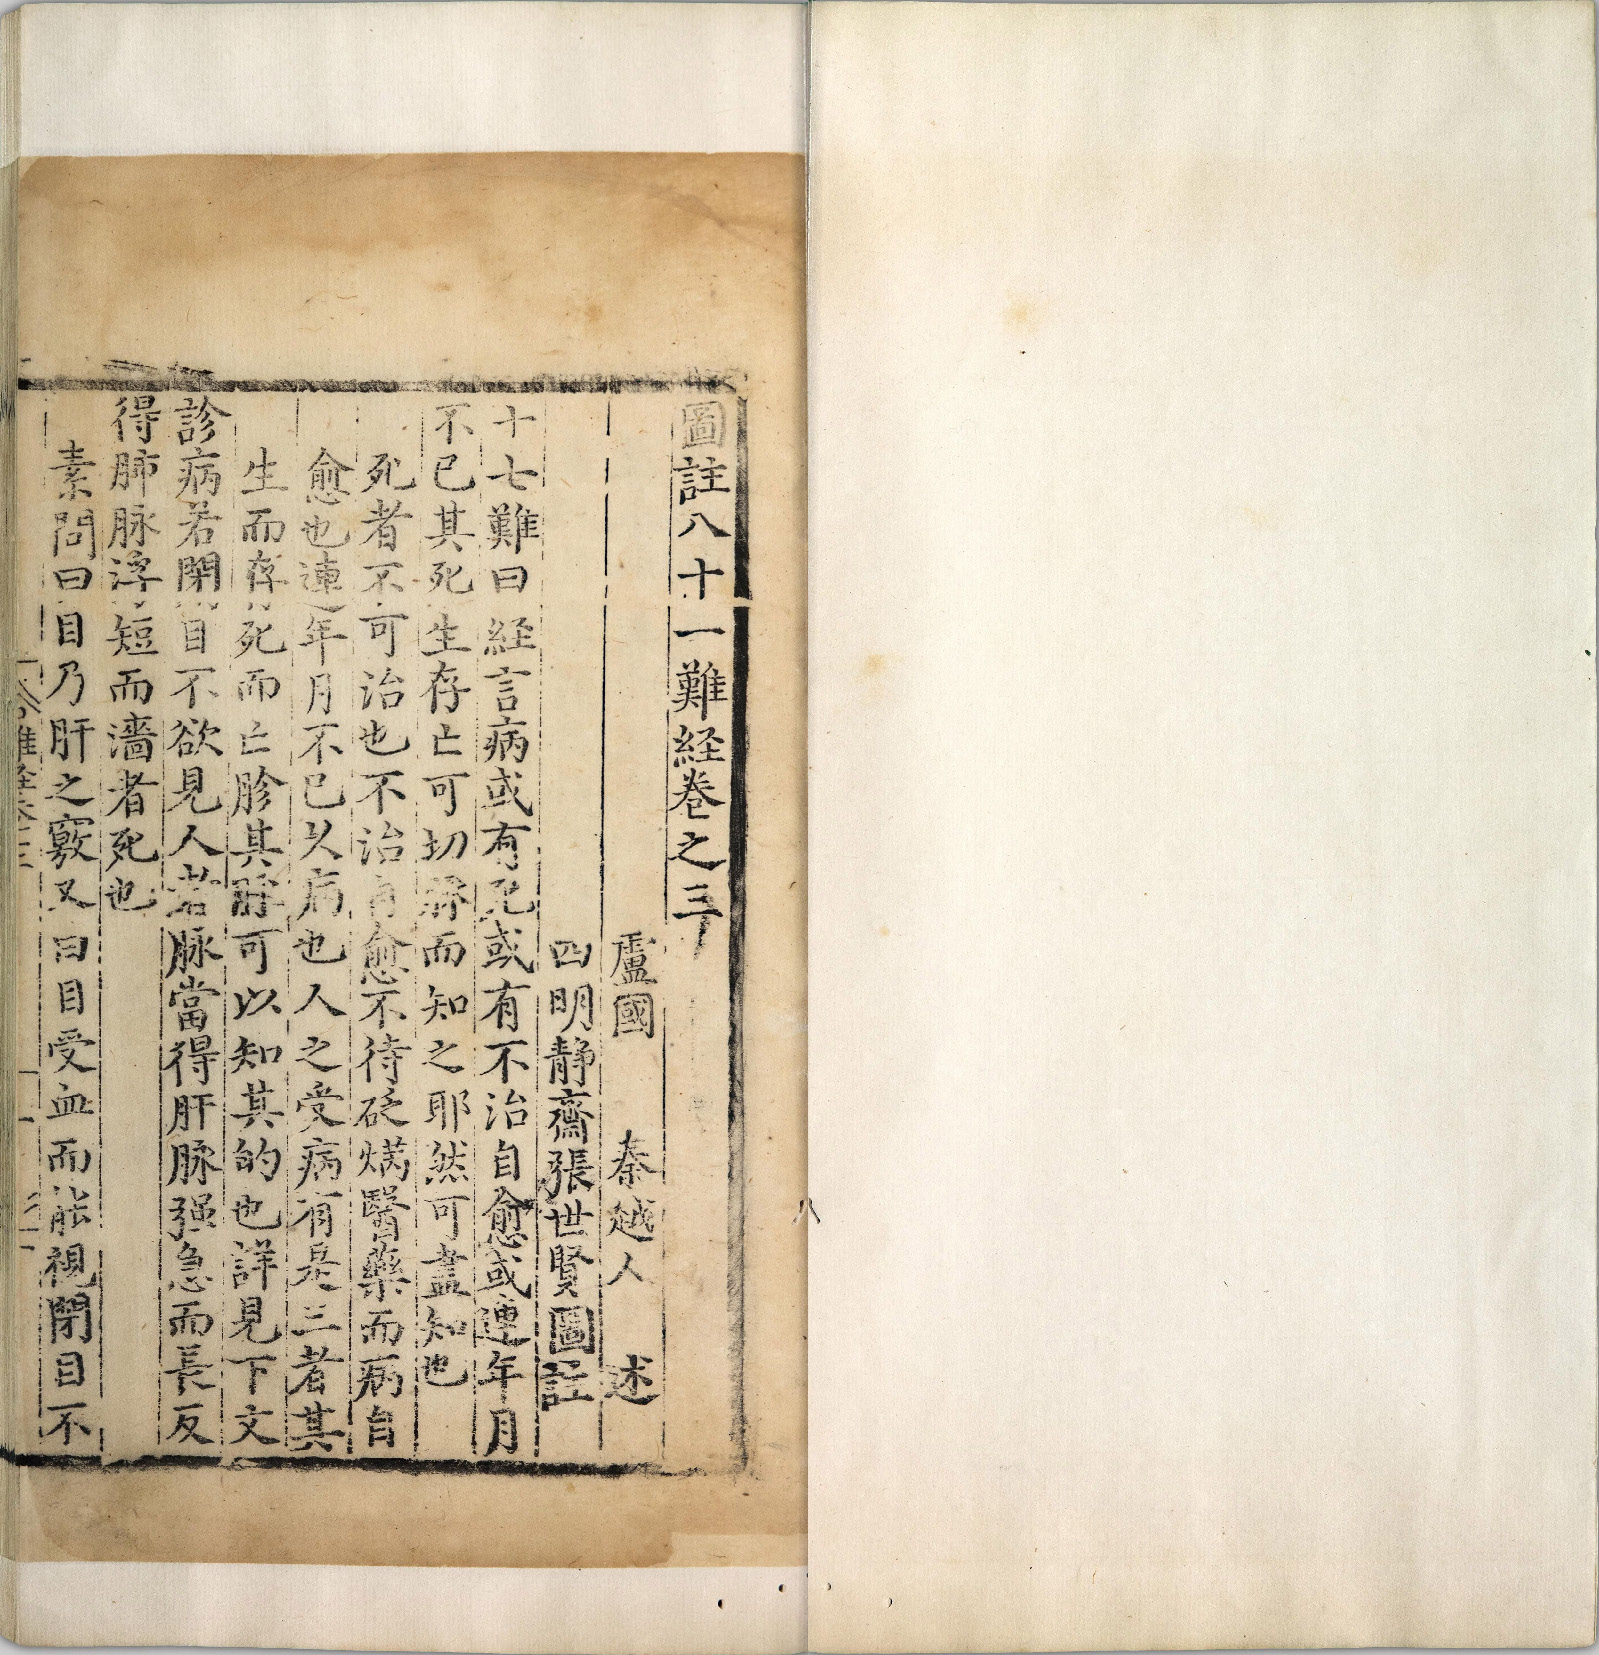 圖註八十一難経卷之三
盧國 秦越人 述
四明靜齋張世賢圖註
十七難曰経言病或有死或有不治自愈或連年月
不已其死生存亡可切脉而知之耶然可盡知也
死者不可治也不治自愈不待砭焫醫藥而病自
愈也連年月不已久病也人之受病有是三者其
生而存死而亡胗其脉可以知其的也詳見下文
診病若閉目不欲見人者脉當得肝脉强急而長反
得肺脉浮短而濇者死也
素問曰目乃肝之竅又曰目受血而能視閉目不